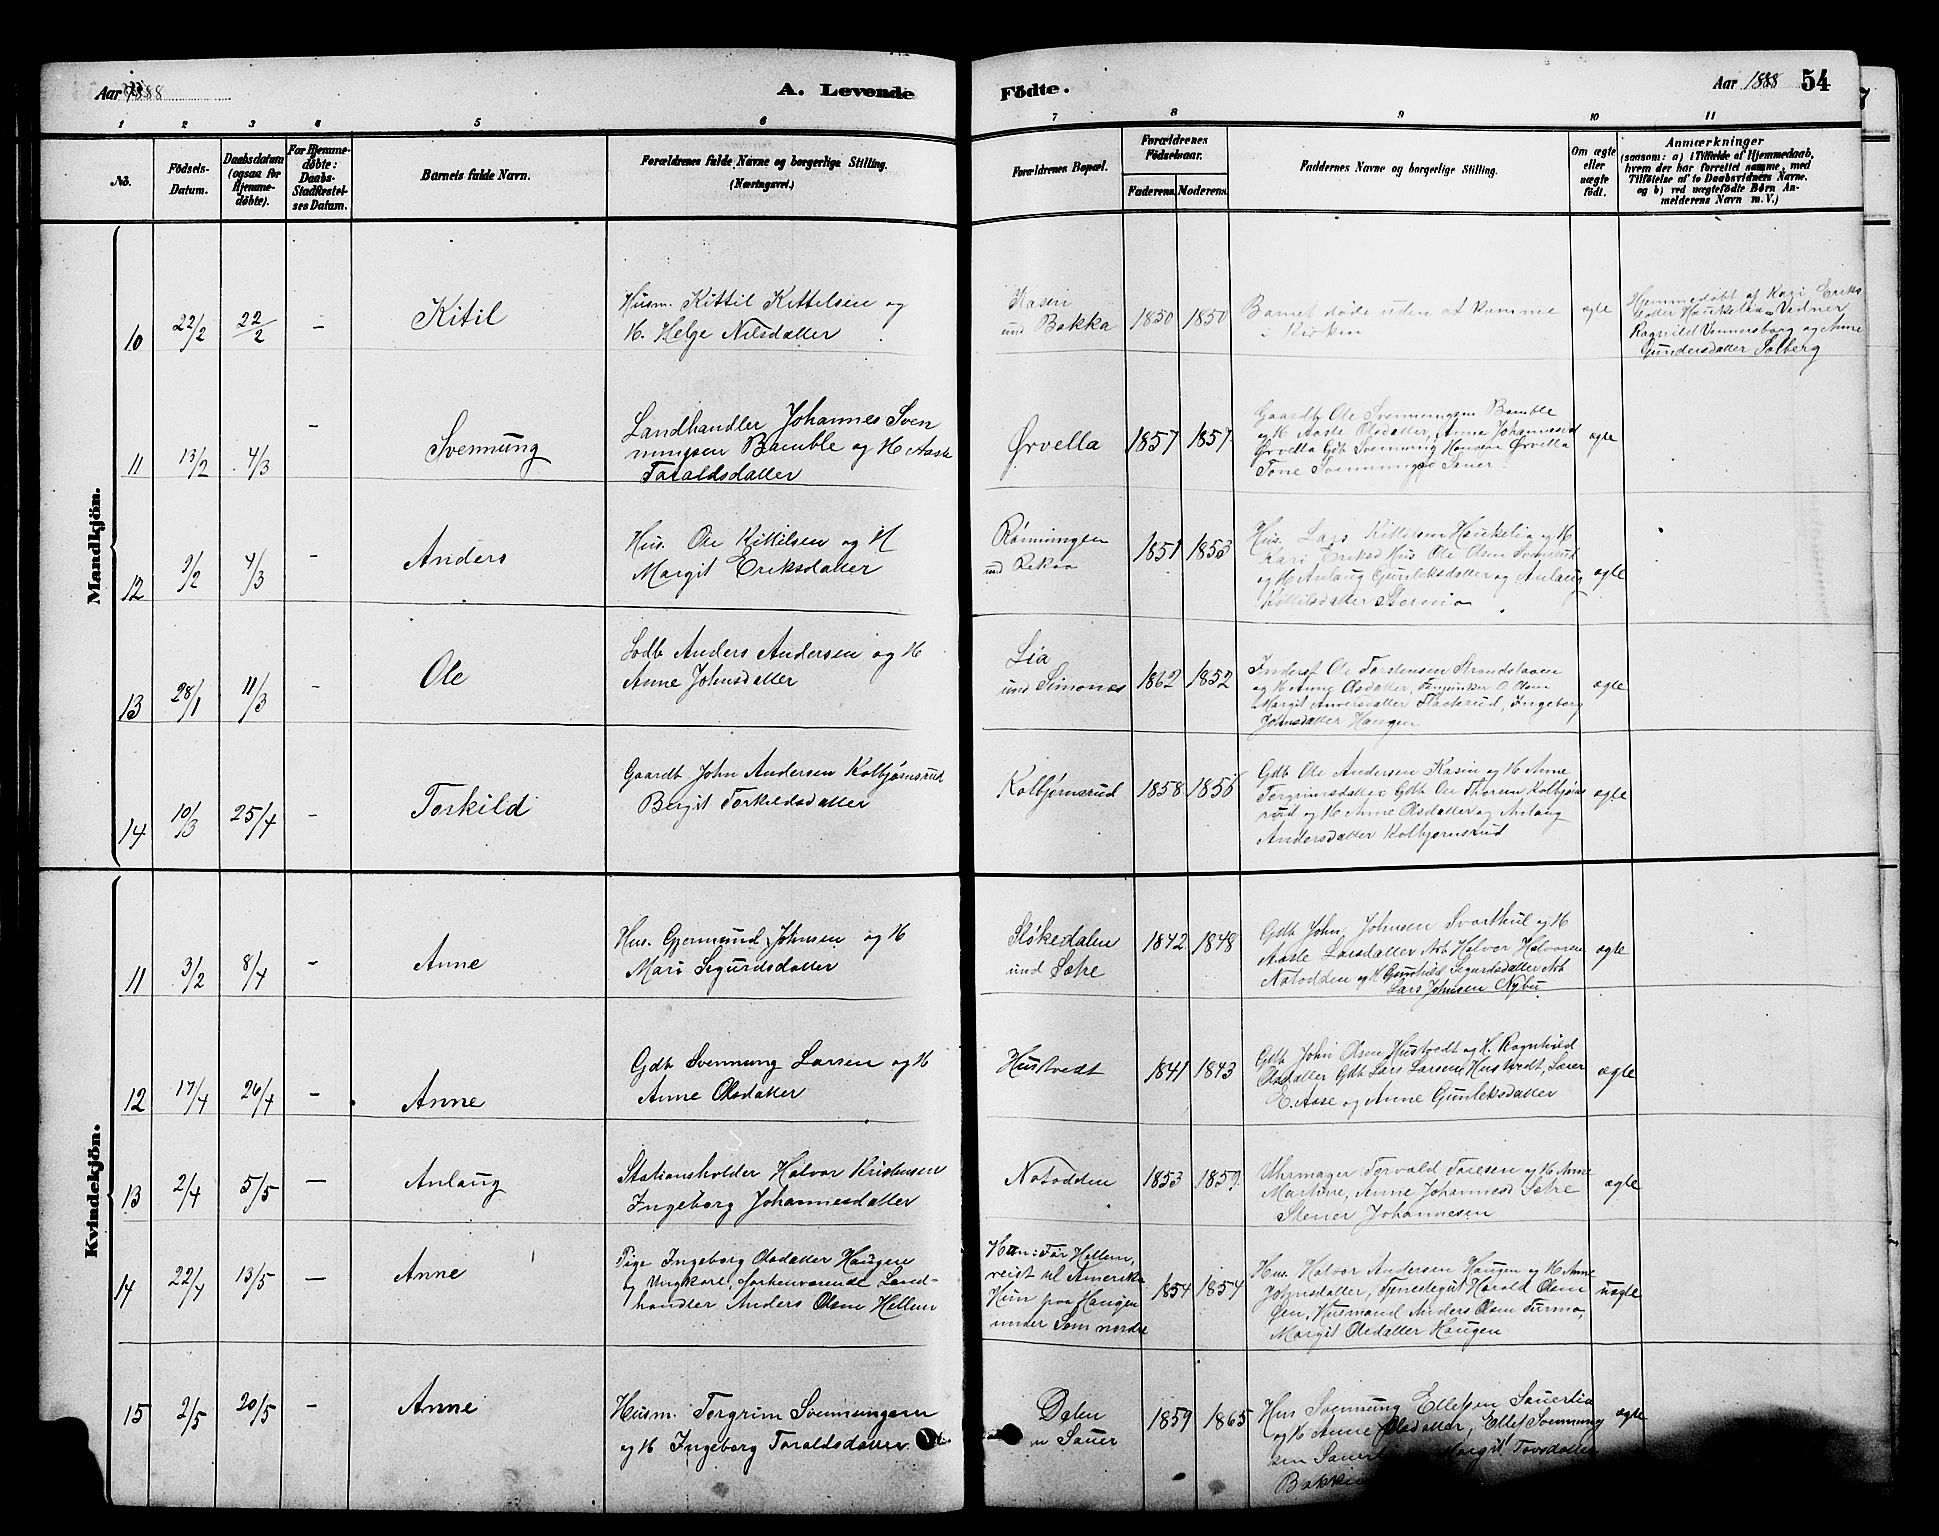 Aar 1888
A. Levende
Fødte.
Aar 1888
54
1 2 3 4 5 6 7 8 9 10 11
No.
Fødsels-
Datum.
Daabsdatum
(ogsaa for
Hjemme-
døbte).
For Hjemme-
døbte:
Daabs-
Stadfæstel-
ses Datum.
Barnets fulde Navn.
Forældrenes fulde Navne og borgerlige Stilling.
(Næringsvei.)
Forældrenes Bopæl.
Forældrenes
Fødselsaar.
Faderens. Moderens.
Faddernes Navne og borgerlige Stilling.
Om ægte
eller
uægte
født.
Anmærkninger
(saasom: a) i Tilfælde af Hjemmedaab,
hvem der har forrettet samme, med
Tilføielse af to Daabsvidners Navne.
og b) ved uægtefødte Børn An-
melderens Navn m. V.)
Mandkjön.
10 22/2 22/2 – Kitil
Husm. Kittil Kittelsen og
K. Helge Nilsdatter
Kasin
und Bakka
1850 1850
Barnet døde uden at komme
i Kirken
ægte
Hjemmedøbt af Kari Eriks
datter Haukelia Vidner
Ragnild Vennersborg og Anne
Gundersdatter Solberg
11 13/2 4/3 – Svennung
Landhandler Johannes Sven
nungsen Bamble og K Aasle
Taraldsdatter
Ørvella
1857 1857
Gaardb Ole Svennungsen Bamble
og K Aasle Olsdatter, Anne Johannesd
Ørvella Gdb Svennung Hansen Ørvella
Tone Svennungsd
ægte
12 9/2 4/3 – Anders
Hus. Ole Kittilsen og K
Margit Eriksdatter
Rønningen
und
1851 1853
Hus. Lars Kittilsen Haukelia og K
Kari Eriksd Hus Ole Olsen
og K Anlaug Gunleksdatter og Anlaug
Kittilsdatter
ægte
13 28/1 11/3 – Ole
Anders Andersen og K
Anne Johnsdatter
Lia
und Simones
1862 1852
Inderst Ole Torstensen
og K Anne Olsdatter, O. Olsen
Margit Ingeborg
Johnsdatter Haugen
ægte
14 10/3 25/4 – Torkild
Gaardb John Andersen Kolbjørnsrud
Bergit Torkildsdatter
Kolbjørnsrud
1858 1856
Gdb Ole Andersen Kasin og K Anne
Torgrimsdatter Gdb Ole Thorsen Kolbjørns
rud og K Anne Olsdatter og Anlaug
Andersdatter Kolbjørnsrud
ægte
Kvindekjön.
11 3/2 8/4 – Anne
Hus. Gjermund Johnsen og K
Mari Sigurdsdatter
Sløkedalen
und Sætre
1842 1848
Gdb John Johnsen Svarthul og K
Aasle Larsdatter Arb Halvor Halvorsen
Notodden og K Gunhild Sigurdsdatter Arb
Lars Johnsen Nybu
ægte
12 17/4 26/4 – Anne
Gdb Svennung Larsen og K
Anne Olsdatter
Hustvedt
1841 1843
Gdb John Olsen Hustvedt og K. Ragnhild
Olsdatter Gdb Lars Larsen Hustvedt, Lærer
E. Aase og Anne Gunleksdatter
ægte
13 2/4 5/5 – Anlaug
Stationsholder Halvor Kristensen
Ingeborg Johannesdatter
Notodden
1853 1859
Uhrmager Torvald Toresen og K Anne
Martine, Anne Johannesd Sætre
Stener Johannesen
ægte
14 22/4 13/5 – Anne
Pige Ingeborg Olsdatter Haugen
og Ungkarl, forhenværende Land-
handler Anders Olsen Hellem
Han: Før Hellem,
reist til Amerika
Hun paa Haugen
under Sem nordre
1854 1854
Hus. Halvor Andersen Haugen og K Anne
Johnsdatter, Tjenestegut Harald Olsen
Husmand Anders Olsen
Margit Olsdatter Haugen
uægte
15 2/5 20/5 – Anne
Husm. Torgrim Svennungsen
og K Ingeborg Taraldsdatter
Dalen
Sauer
1859 1865
Hus Svennung Ellefsen Sauerlia
og K Anne Olsdatter, Ellef Svennung
sen Margit Tovsdatter
ægte